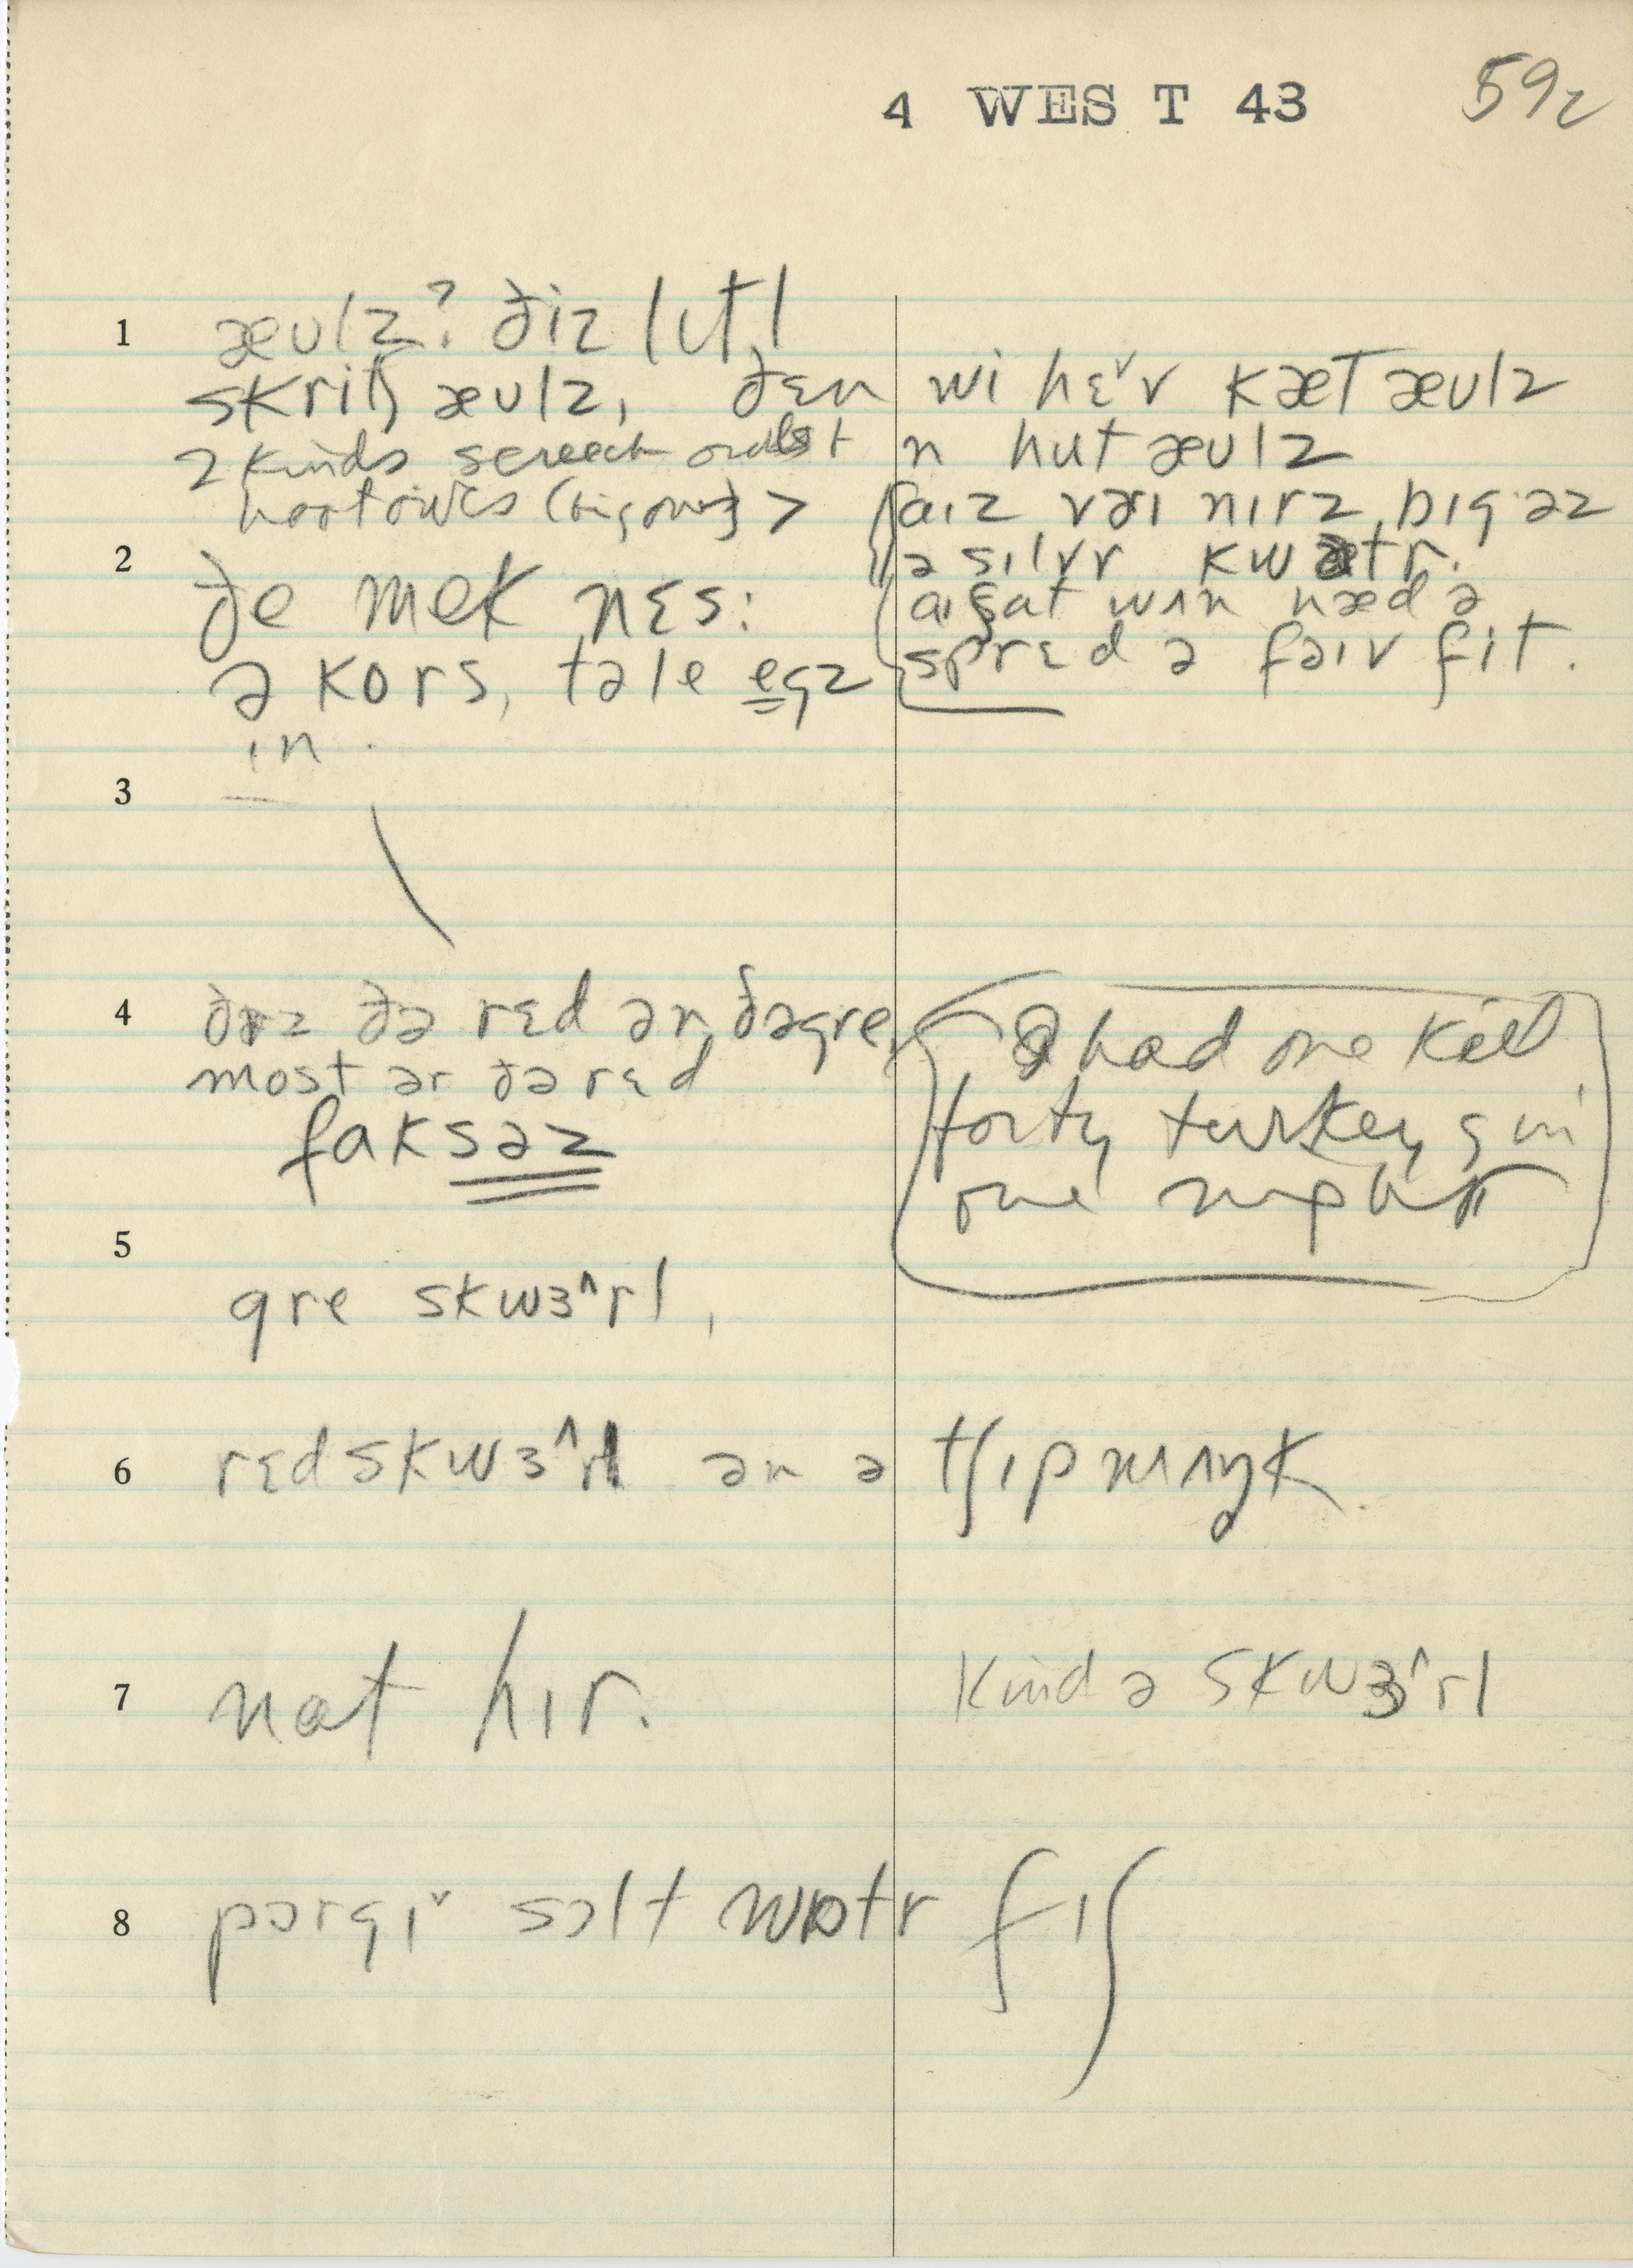 4 WEST 43 592
1 æulz? ðiz lɪtl
skritʃ æulz, ðɛn wi hɛ˅v kæt æulz
2 kinds screech owls + n hut æulz
hoot owls (big ones) > aɪz vəɪ nɪrz bɪg əz
ə sɪlvr kwɒtr.
2 ðe mek nɛs: aɪ ʃat wʌn hæd ə
ə kors, tə le egz sprɛd ə faɪv fit.
ɪn.
3
4 ðrz ðə rɛd ən ðə gre, I had one kill
most ər ðə rɛd forty turkeys in
faksəz one night
5
gre skwɜ^rl,
6 rɛd skwɜ^rl ən ə tʃɪpmʌŋk.
7 nat hɪr. kind ə skwɜ^rl
8 pɔrgɪ˅ sɔlt wɒtr fɪʃ